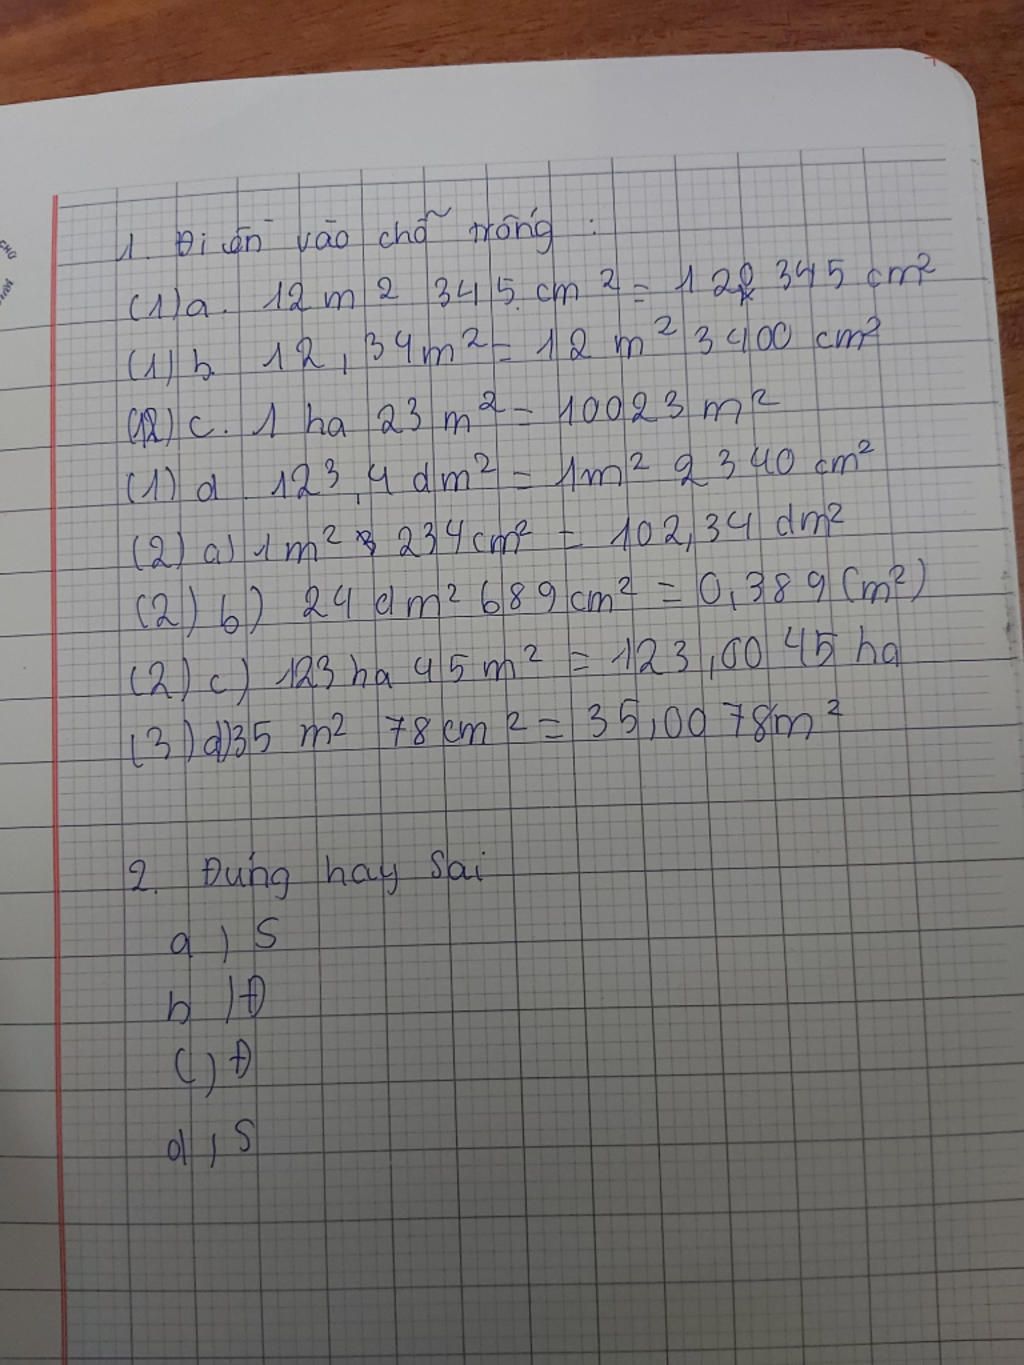 1. Điền vào chỗ trống :
(1) a. 12 m2 345 cm² = 120 345 cm²
(1) b. 12,34m² = 12 m² 3400 cm²
(12) c. 1 ha 23 m² = 10023 m²
(1) d 123,4 dm² = 1m² 2340 cm²
(2) a) 1 m² 234 cm² = 102,34 dm²
(2) b) 24 dm² 689 cm² = 0,389 (m²)
(2) c) 123 ha 45 m² = 123,0045 ha
(3) d) 35 m² 78 cm² = 35,0078m²
2. Đúng hay Sai
a, S
b) Đ
c) Đ
d, S